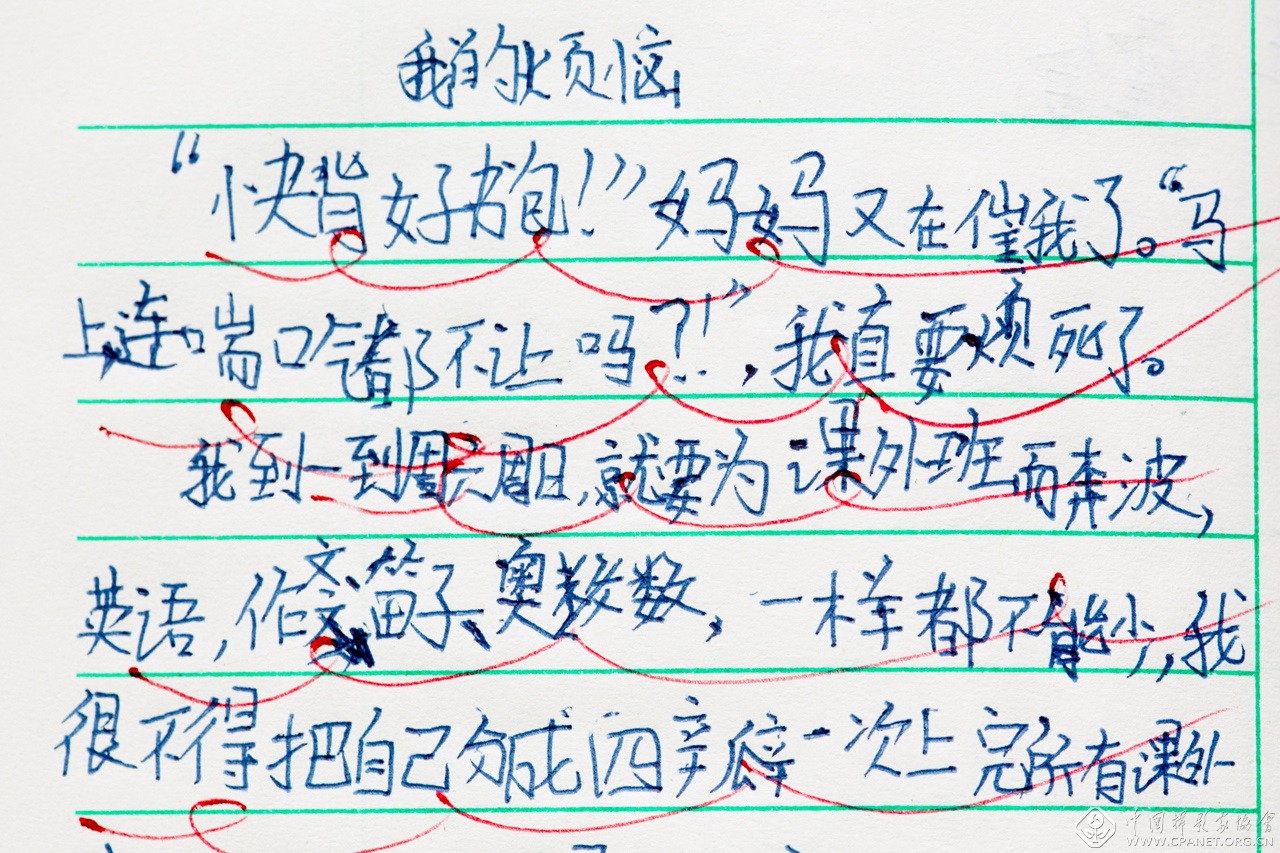 我的烦恼
“快背好书包！”妈妈又在催我了。“马
上,连喘口气都不让吗?！”，我直要烦死了。
我到一到周六周日,就要为课外班而奔波，
英语,作文、笛子、奥数数，一样都不能少，我
很不得把自己分成四瓣一次上完所有课外
中国摄影家协会
WWW.CPANET.ORG.CN